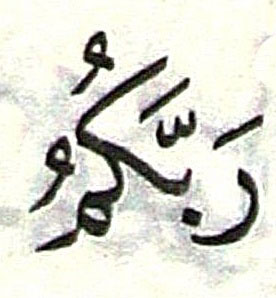 رَبَّكُمُ